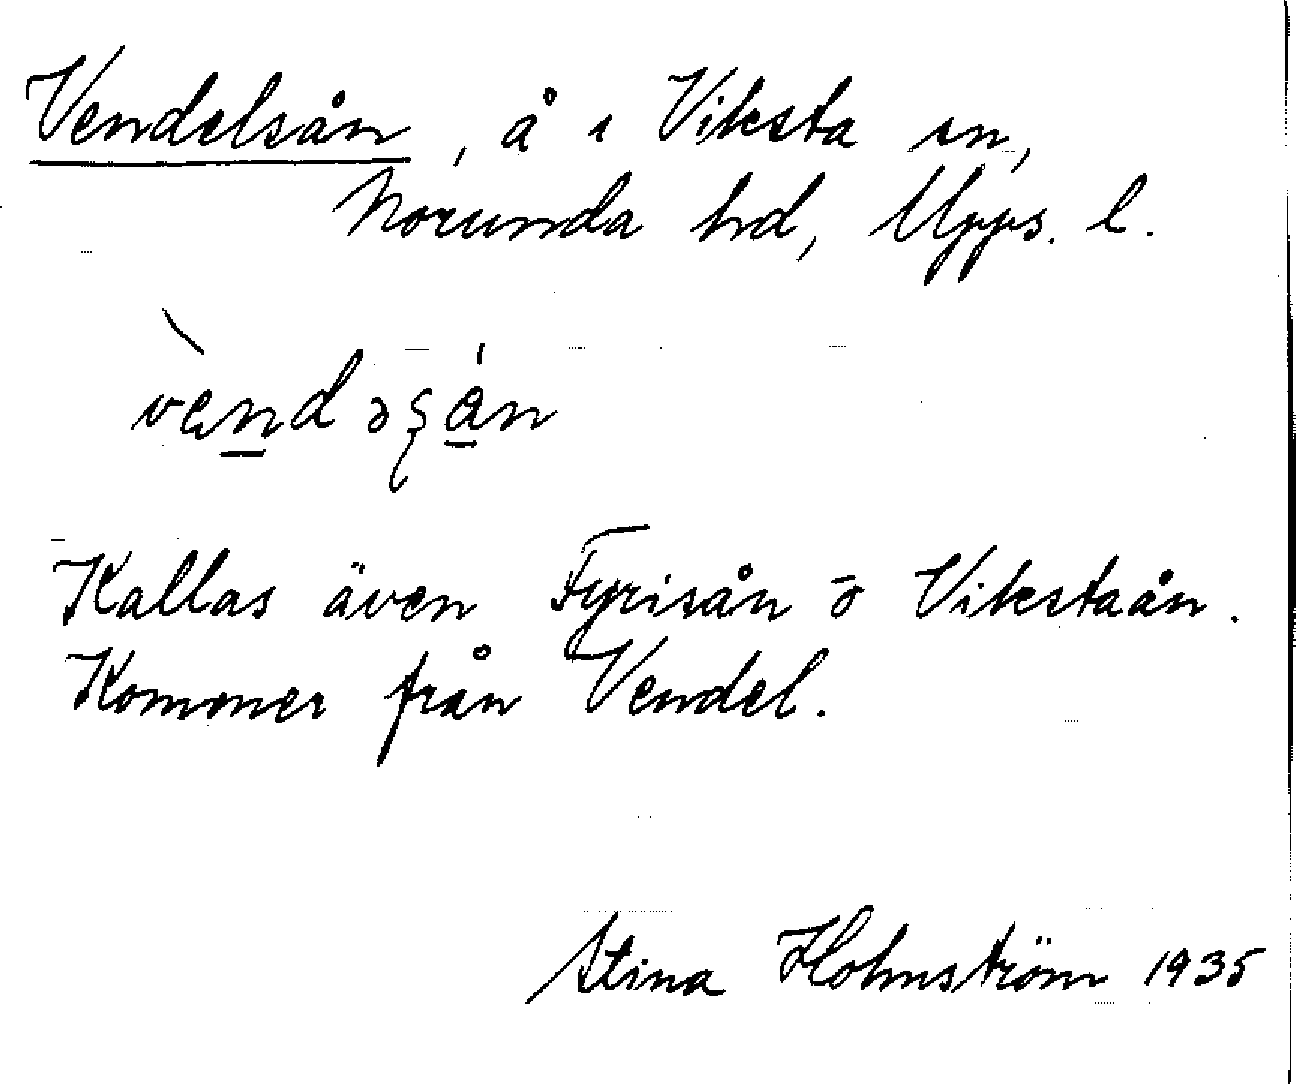 Vendelsån, å i Viksta sn,
Norunda hd, Upps. l.
Kallas även Fyrisån o Vikstaån.
Kommer från Vendel.
Stina Holmström 1935